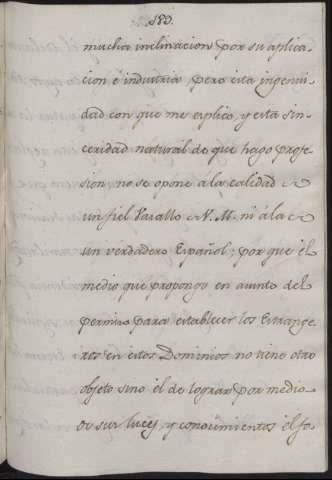 183.
mucha inclinacion por su aplica-
cion è industria, pero esta ingenui-
dad con que me explico, y esta sin-
ceridad natural de que hago profe-
sion, no se opone à la calidad de
un fiel Vasallo de V. M. ni à la de
un verdadero Español; por que él
medio que propongo en asunto del
permiso para establecer los Estrange-
ros en estos Dominios no tiene otro
objeto sino él de lograr por medio
de sus luces, y conocimientos él fo-